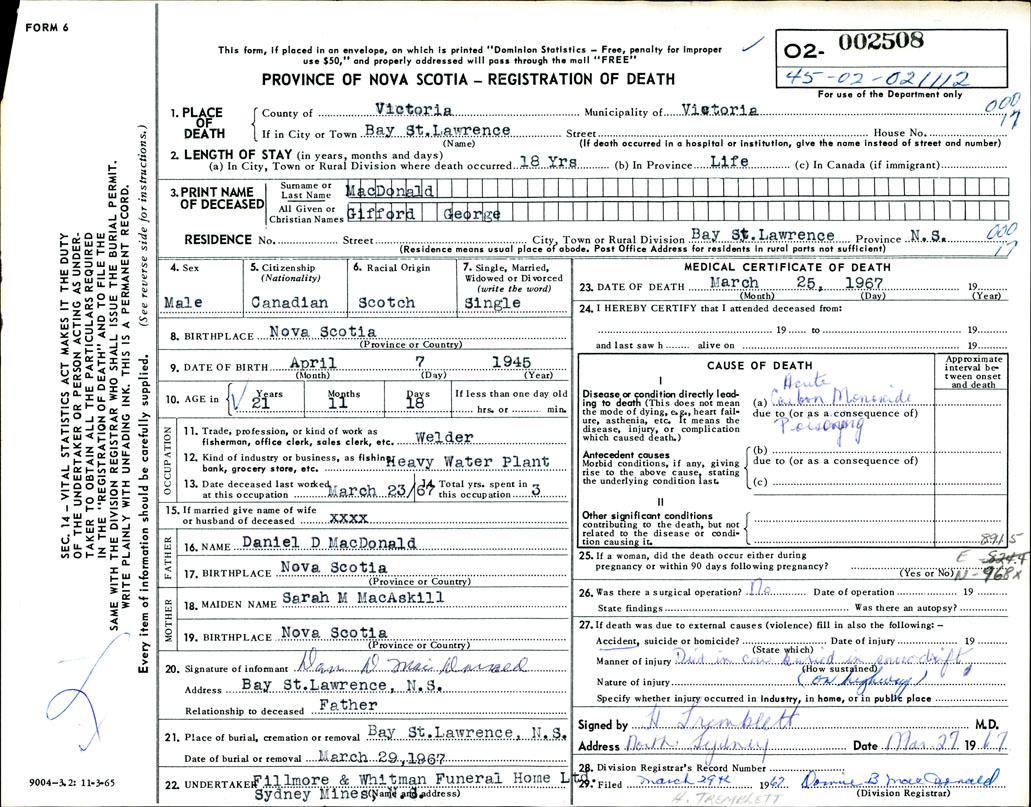 FORM 6
This form, if placed in an envelope, on which is printed "Dominion Statistics – Free, penalty for improper
use $50," and properly addressed will pass through the mail "FREE"
PROVINCE OF NOVA SCOTIA – REGISTRATION OF DEATH
O2- 002508
45-02-021112
For use of the Department only
000
17
SEC. 14 – VITAL STATISTICS ACT MAKES IT THE DUTY
OF THE UNDERTAKER OR PERSON ACTING AS UNDER-
TAKER TO OBTAIN ALL THE PARTICULARS REQUIRED
IN THE "REGISTRATION OF DEATH" AND TO FILE THE
SAME WITH THE DIVISION REGISTRAR WHO SHALL ISSUE THE BURIAL PERMIT.
WRITE PLAINLY WITH UNFADING INK. THIS IS A PERMANENT RECORD.
Every item of information should be carefully supplied. (See reverse side for instructions.)
1. PLACE OF DEATH
County of Victoria Municipality of Victoria
If in City or Town Bay St.Lawrence Street House No.
(Name) (If death occurred in a hospital or institution, give the name instead of street and number)
2. LENGTH OF STAY (in years, months and days)
(a) In City, Town or Rural Division where death occurred 18 Yrs (b) In Province Life (c) In Canada (if immigrant)
3. PRINT NAME OF DECEASED
Surname or Last Name MacDonald
All Given or Christian Names Gifford George
RESIDENCE No. Street City, Town or Rural Division Bay St.Lawrence Province N.S.
(Residence means usual place of abode. Post Office Address for residents in rural parts not sufficient)
000
17
4. Sex
Male
5. Citizenship (Nationality)
Canadian
6. Racial Origin
Scotch
7. Single, Married, Widowed or Divorced (write the word)
Single
8. BIRTHPLACE Nova Scotia
(Province or Country)
9. DATE OF BIRTH April 7 1945
(Month) (Day) (Year)
10. AGE in Years Months Days If less than one day old
21 11 18 hrs. or min.
OCCUPATION
11. Trade, profession, or kind of work as
fisherman, office clerk, sales clerk, etc. Welder
12. Kind of industry or business, as fishing,
bank, grocery store, etc. Heavy Water Plant
13. Date deceased last worked at this occupation March 23/67
14. Total yrs. spent in this occupation 3
15. If married give name of wife
or husband of deceased xxxx
FATHER
16. NAME Daniel D MacDonald
17. BIRTHPLACE Nova Scotia
(Province or Country)
MOTHER
18. MAIDEN NAME Sarah M MacAskill
19. BIRTHPLACE Nova Scotia
(Province or Country)
20. Signature of informant Dan D. MacDonald
Address Bay St.Lawrence, N.S.
Relationship to deceased Father
21. Place of burial, cremation or removal Bay St.Lawrence, N.S.
Date of burial or removal March 29,1967
22. UNDERTAKER Fillmore & Whitman Funeral Home Ltd.
Sydney Mines, N.S.
(Name and address)
9004–3.2: 11-3-65
MEDICAL CERTIFICATE OF DEATH
23. DATE OF DEATH March 25, 1967 19
(Month) (Day) (Year)
24. I HEREBY CERTIFY that I attended deceased from:
19 to 19
and last saw h alive on 19
CAUSE OF DEATH
Approximate interval between onset and death
I
Disease or condition directly lead-
ing to death (This does not mean
the mode of dying, e.g., heart fail-
ure, asthenia, etc. It means the
disease, injury, or complication
which caused death.)
Acute
(a) Carbon Monoxide
due to (or as a consequence of)
Poisoning
Antecedent causes
Morbid conditions, if any, giving
rise to the above cause, stating
the underlying condition last.
(b)
due to (or as a consequence of)
(c)
II
Other significant conditions
contributing to the death, but not
related to the disease or condi-
tion causing it.
891.5
25. If a woman, did the death occur either during
pregnancy or within 90 days following pregnancy?
(Yes or No)
E
N-968x
26. Was there a surgical operation? No Date of operation 19
State findings Was there an autopsy?
27. If death was due to external causes (violence) fill in also the following: –
Accident, suicide or homicide? Date of injury 19
(State which)
Manner of injury Died in car buried in snowdrift
(How sustained)
Nature of injury (on highway)
Specify whether injury occurred in Industry, in home, or in public place
Signed by H Tremblett M.D.
Address North Sydney Date Mar. 27 1967
28. Division Registrar's Record Number
29. Filed March 29th 1967 Donnie B MacDonald
(Division Registrar)
H. TREMBLETT